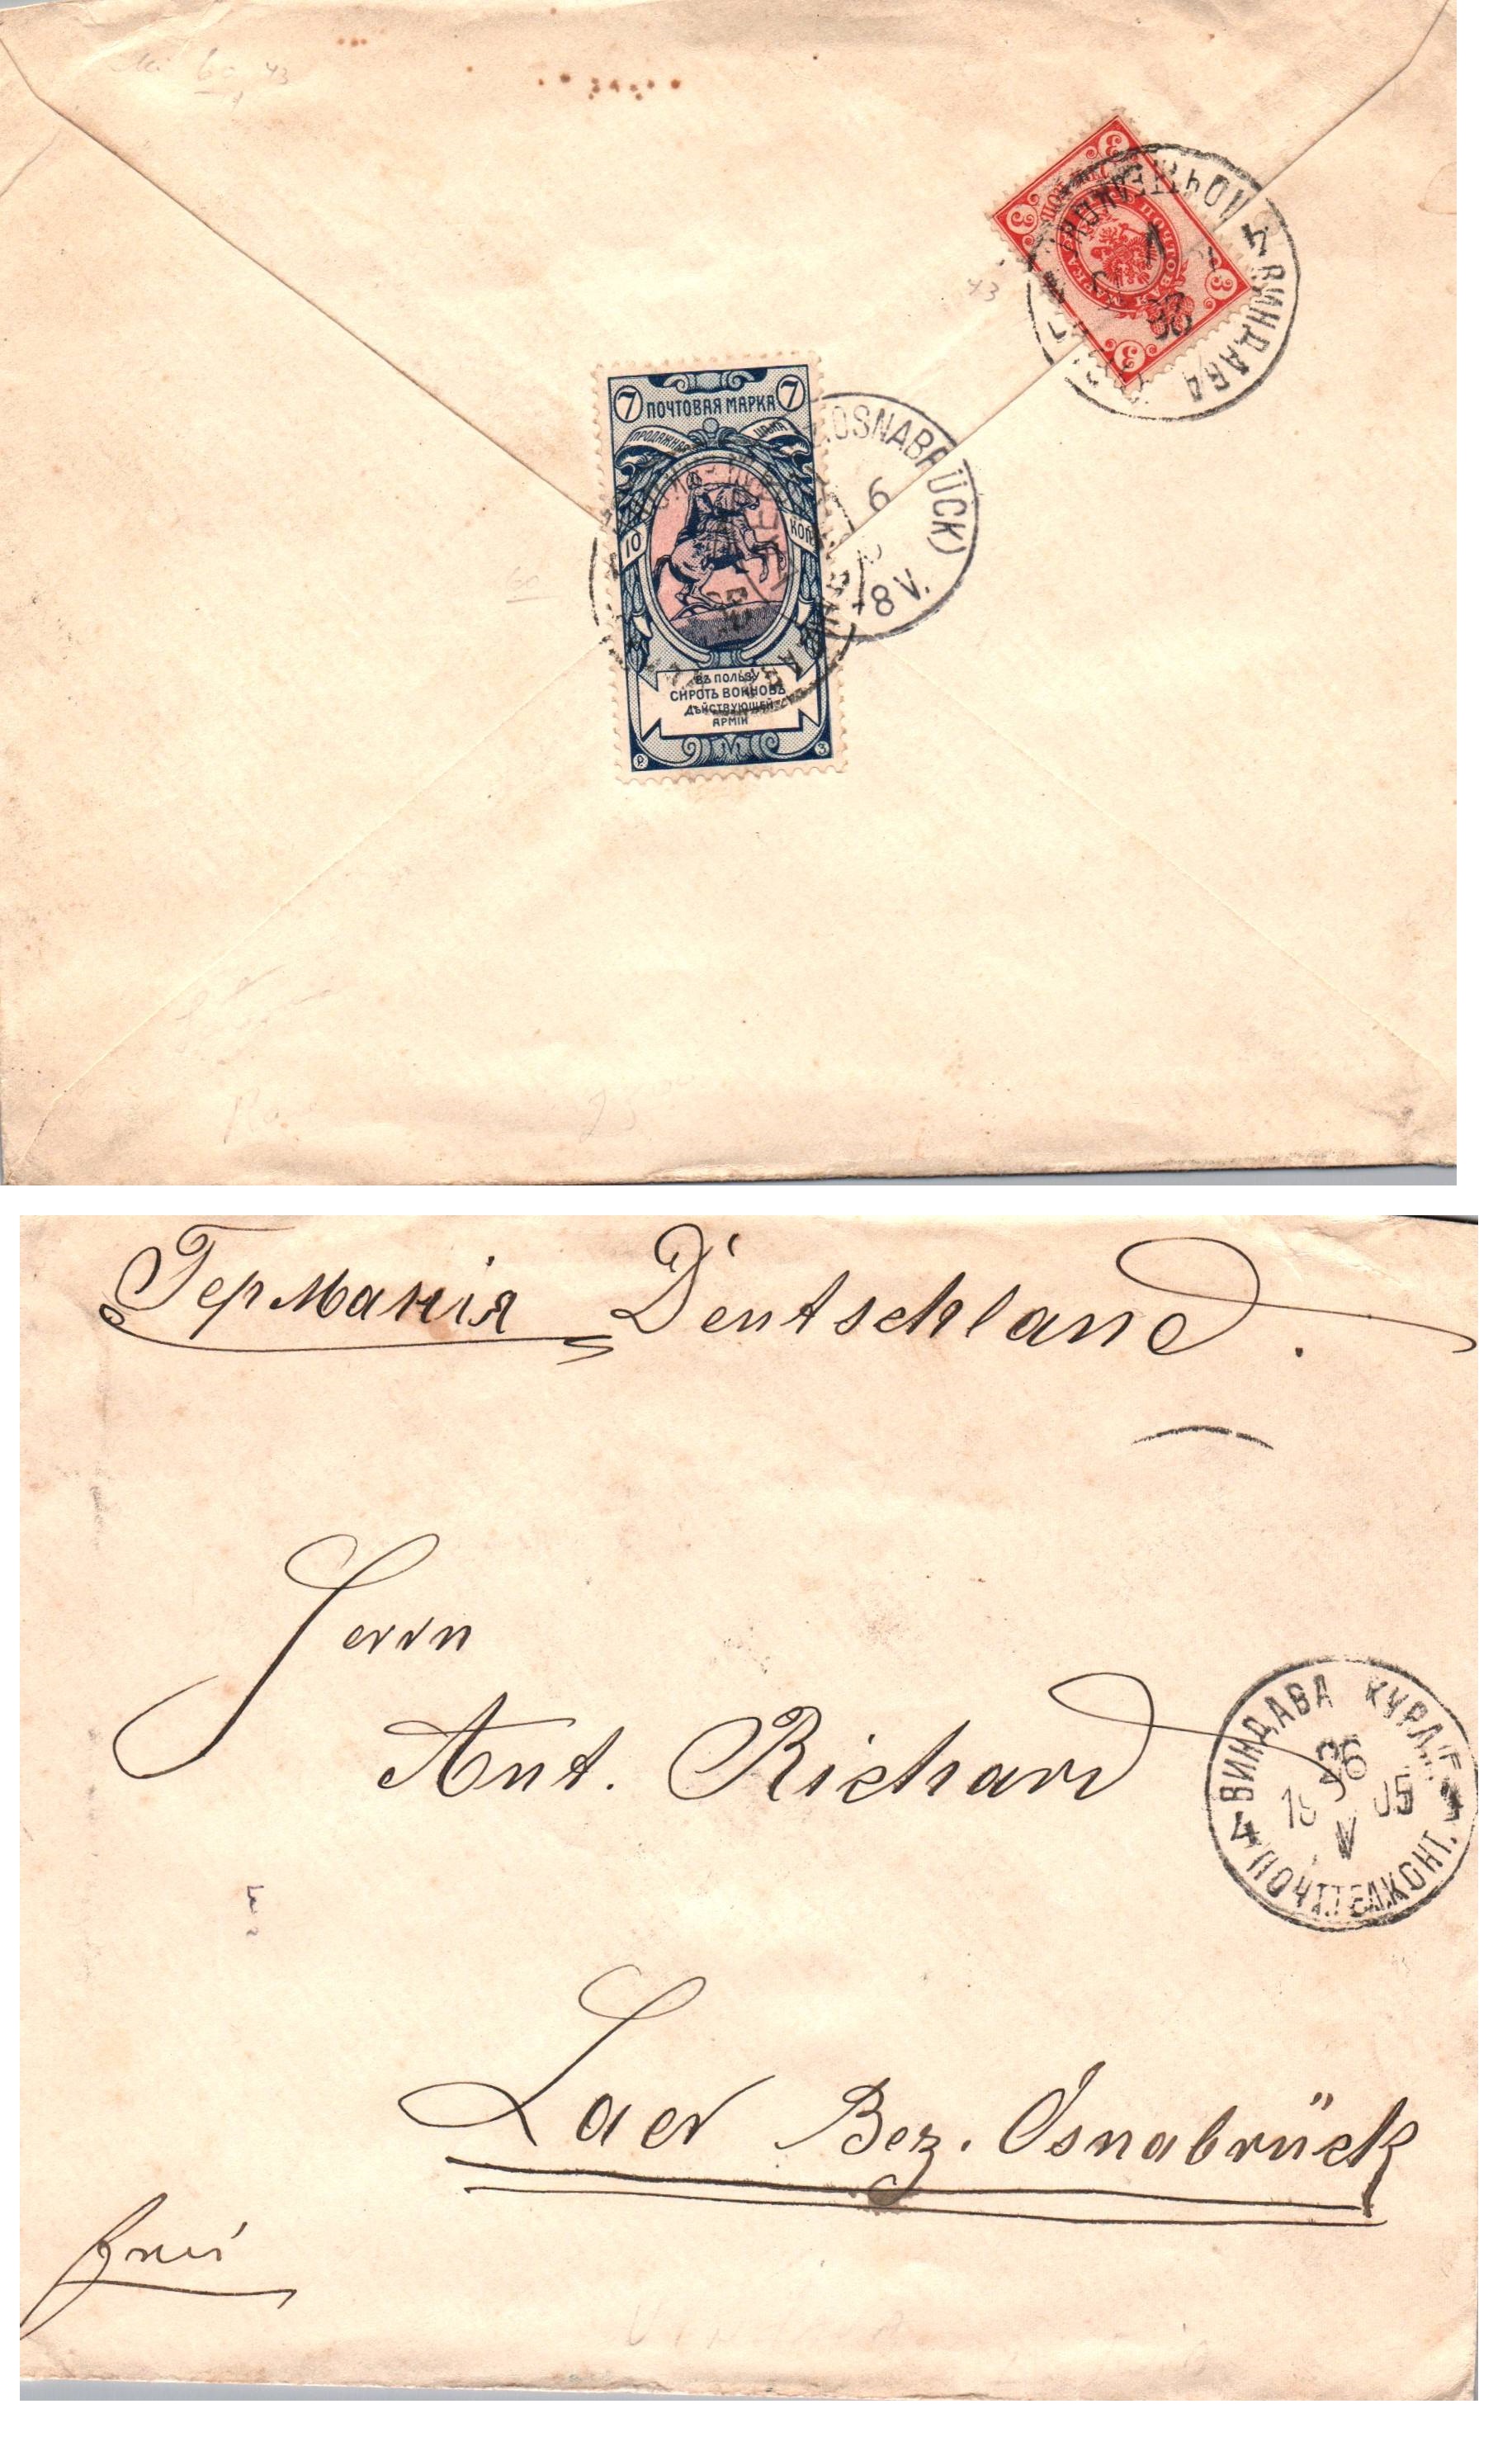 3
3
3
3
ПОЧТОВАЯ МАРКА
ВИНДАВА
4
7 ПОЧТОВАЯ МАРКА 7
ПРОДАЖНАЯ ЦѢНА
10 КОП.
ВЪ ПОЛЬЗУ
СИРОТЪ ВОИНОВЪ
ДѢЙСТВУЮЩЕЙ
АРМІИ
Р. 3
OSNABRÜCK)
6
8 V.
43
Германія Deutschland.
Herrn
Ant. Richard
ВИНДАВА КУРЛ.
26
19 05
V
4
ПОЧТ.ТЕЛ.КОНТ.
Laer Bez. Osnabrück
frei